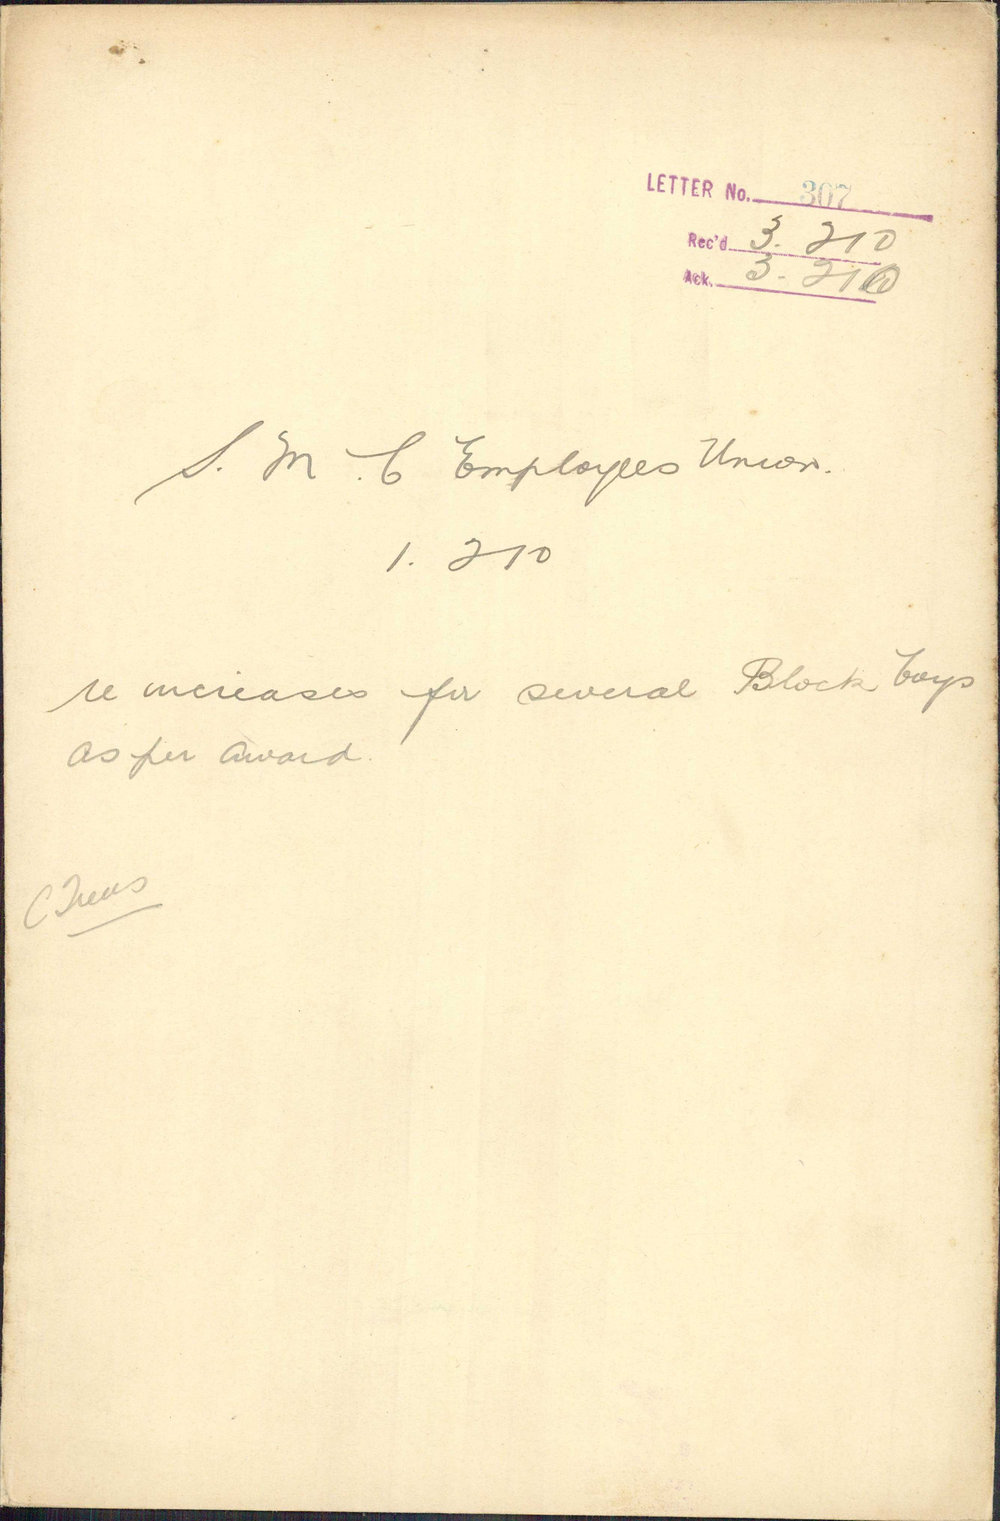 LETTER No. 307
Rec'd 3. 2 10
Ack. 3. 2 10
S. M. C Employees Union.
1. 2 10
re increases for several Block boys
as per award.
C Treas